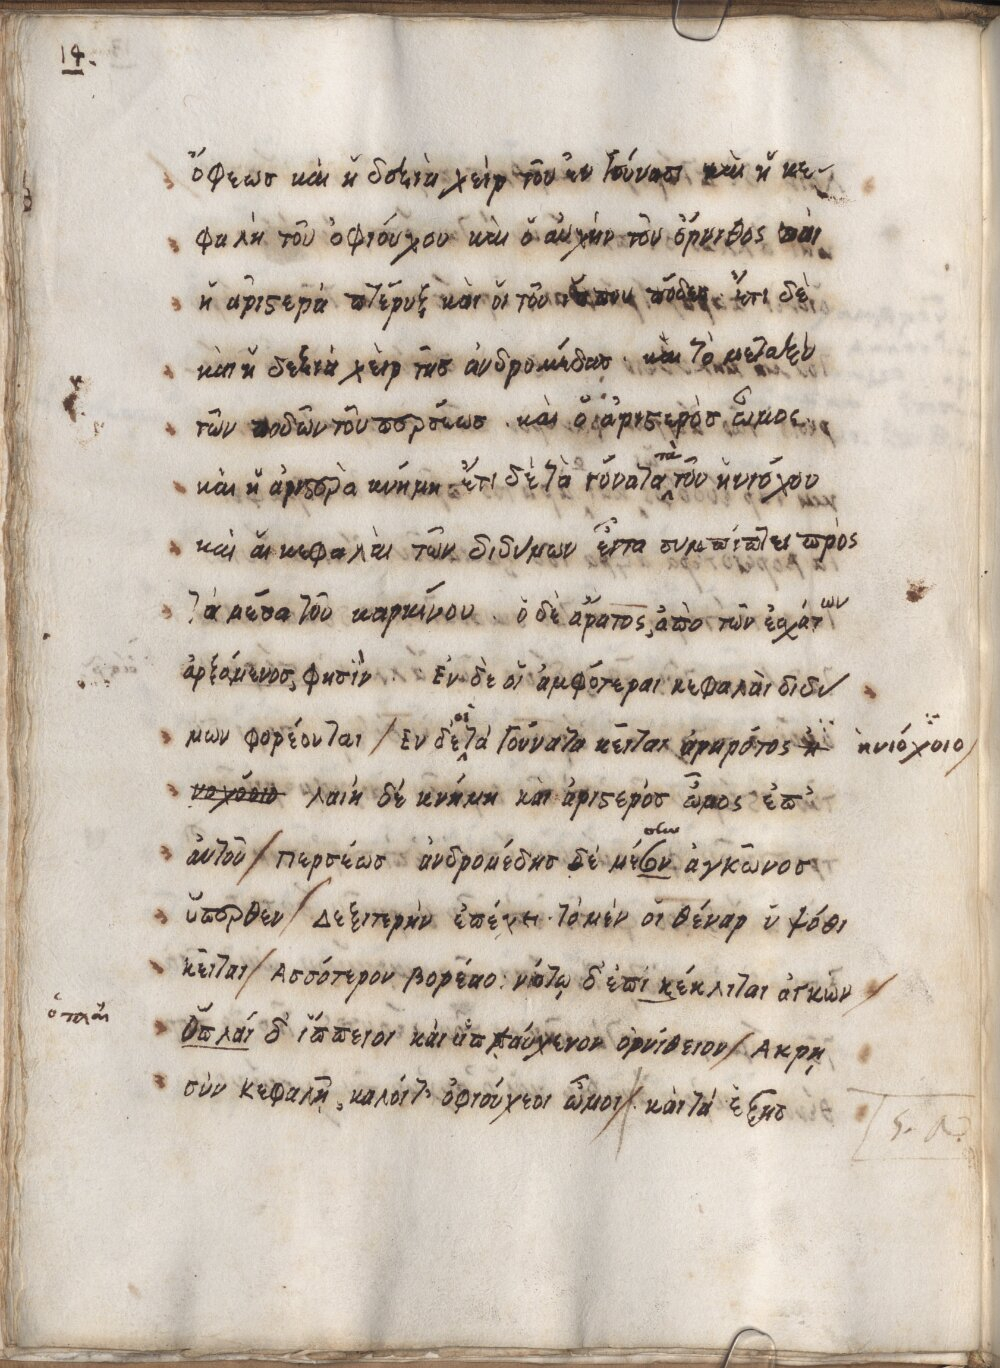 14.
ὄφεως καὶ ἡ δεξιὰ χεὶρ τοῦ ἐν γούνασι καὶ ἡ κε-
φαλὴ τοῦ ὀφιούχου καὶ ὁ αὐχὴν τοῦ ὄρνιθος καὶ
ἡ ἀριστερὰ πτέρυξ καὶ οἱ τοῦ ἵππου πόδες. ἔτι δὲ
καὶ ἡ δεξιὰ χεὶρ τῆς ἀνδρομέδας. καὶ τὸ μεταξὺ
τῶν ποδῶν τοῦ περσέως. καὶ ὁ ἀριστερὸς ὦμος.
καὶ ἡ ἀριστερὰ κνήμη. ἔτι δὲ τὰ γόνατα τὰ τοῦ ἡνιόχου
καὶ αἱ κεφαλαὶ τῶν διδύμων εἶτα συμπίπτει πρὸς
τὰ μέσα τοῦ καρκίνου. ὁ δὲ ἄρατος, ἀπὸ τῶν ἐσχάτων
ἀρξάμενος, φησίν. Ἐν δὲ οἱ ἀμφότεραι κεφαλαὶ διδύ
μων φορέονται / Ἐν δέ οἱ τὰ γούνατα κεῖται ἀρηρότος ἡ ἡνιόχοιο /
νοχόοιο λαιὴ δὲ κνήμη καὶ ἀριστερὸς ὦμος ἐπ'
αὐτοῦ / Περσέως ἀνδρομέδης δὲ μέσην ἀγκῶνος
ὕπερθεν / Δεξιτερὴν ἐπέχει. τὸ μέν οἱ θέναρ ὑψόθι
κεῖται / Ἀσσότερον βορέαο. νότῳ δ' ἐπὶ κέκλιται ἀγκών /
ὁπλαὶ
Ὁπλαί δ' ἵππειοι καὶ ὑπαύχενον ὀρνίθειον / Ἄκρῃ
σὺν κεφαλῇ, καλοί τ' ὀφιούχεοι ὦμοι / καὶ τὰ ἑξῆς